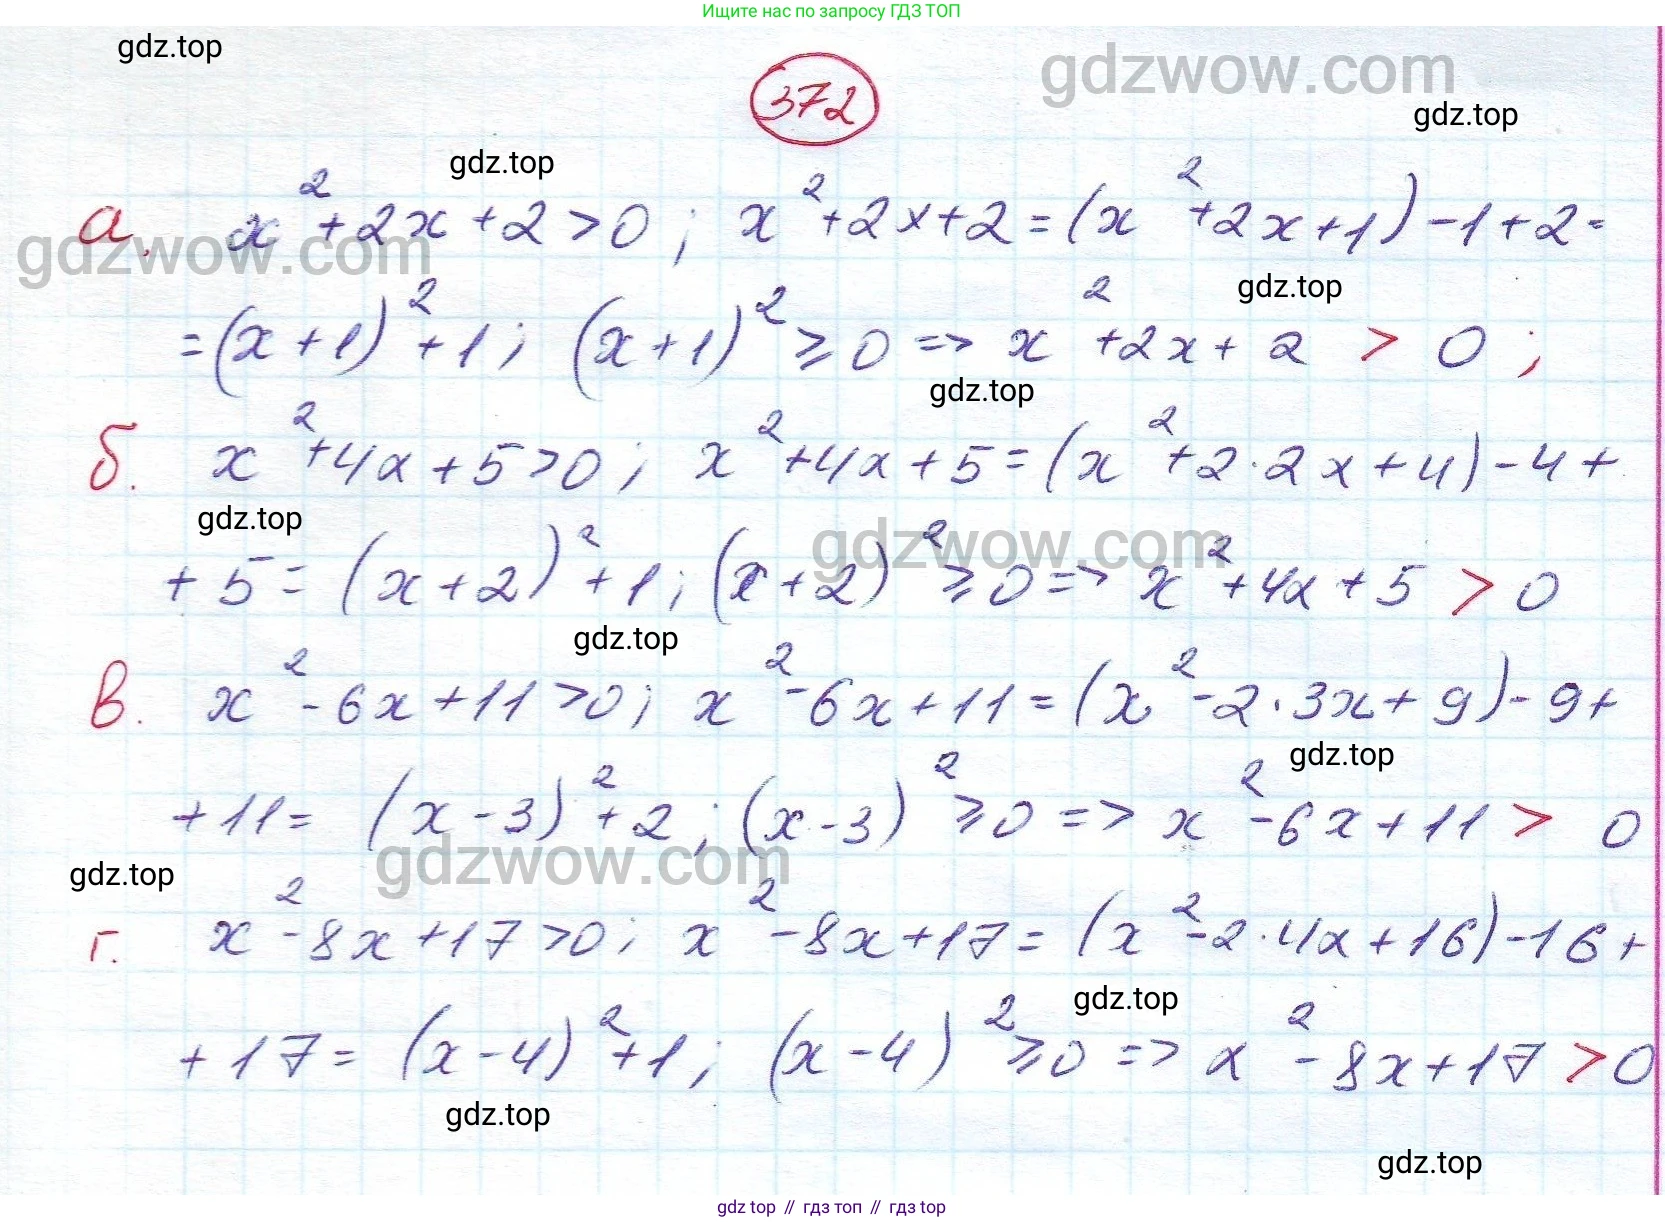 Ищите нас по запросу ГДЗ ТОП
gdz.top
372
gdzwow.com
gdz.top
gdz.top
а. x² + 2x + 2 > 0 ; x² + 2x + 2 = (x² + 2x + 1) - 1 + 2 =
gdzwow.com
gdz.top
= (x + 1)² + 1 ; (x + 1)² ≥ 0 => x² + 2x + 2 > 0 ;
gdz.top
б. x² + 4x + 5 > 0 ; x² + 4x + 5 = (x² + 2 · 2x + 4) - 4 +
gdz.top
gdzwow.com
+ 5 = (x + 2)² + 1 ; (x + 2)² ≥ 0 => x² + 4x + 5 > 0
gdz.top
в. x² - 6x + 11 > 0 ; x² - 6x + 11 = (x² - 2 · 3x + 9) - 9 +
gdz.top
+ 11 = (x - 3)² + 2 ; (x - 3)² ≥ 0 => x² - 6x + 11 > 0
gdzwow.com
gdz.top
г. x² - 8x + 17 > 0 ; x² - 8x + 17 = (x² - 2 · 4x + 16) - 16 +
gdz.top
+ 17 = (x - 4)² + 1 ; (x - 4)² ≥ 0 => x² - 8x + 17 > 0
gdz.top
gdz.top
gdz top // гдз топ // gdz top